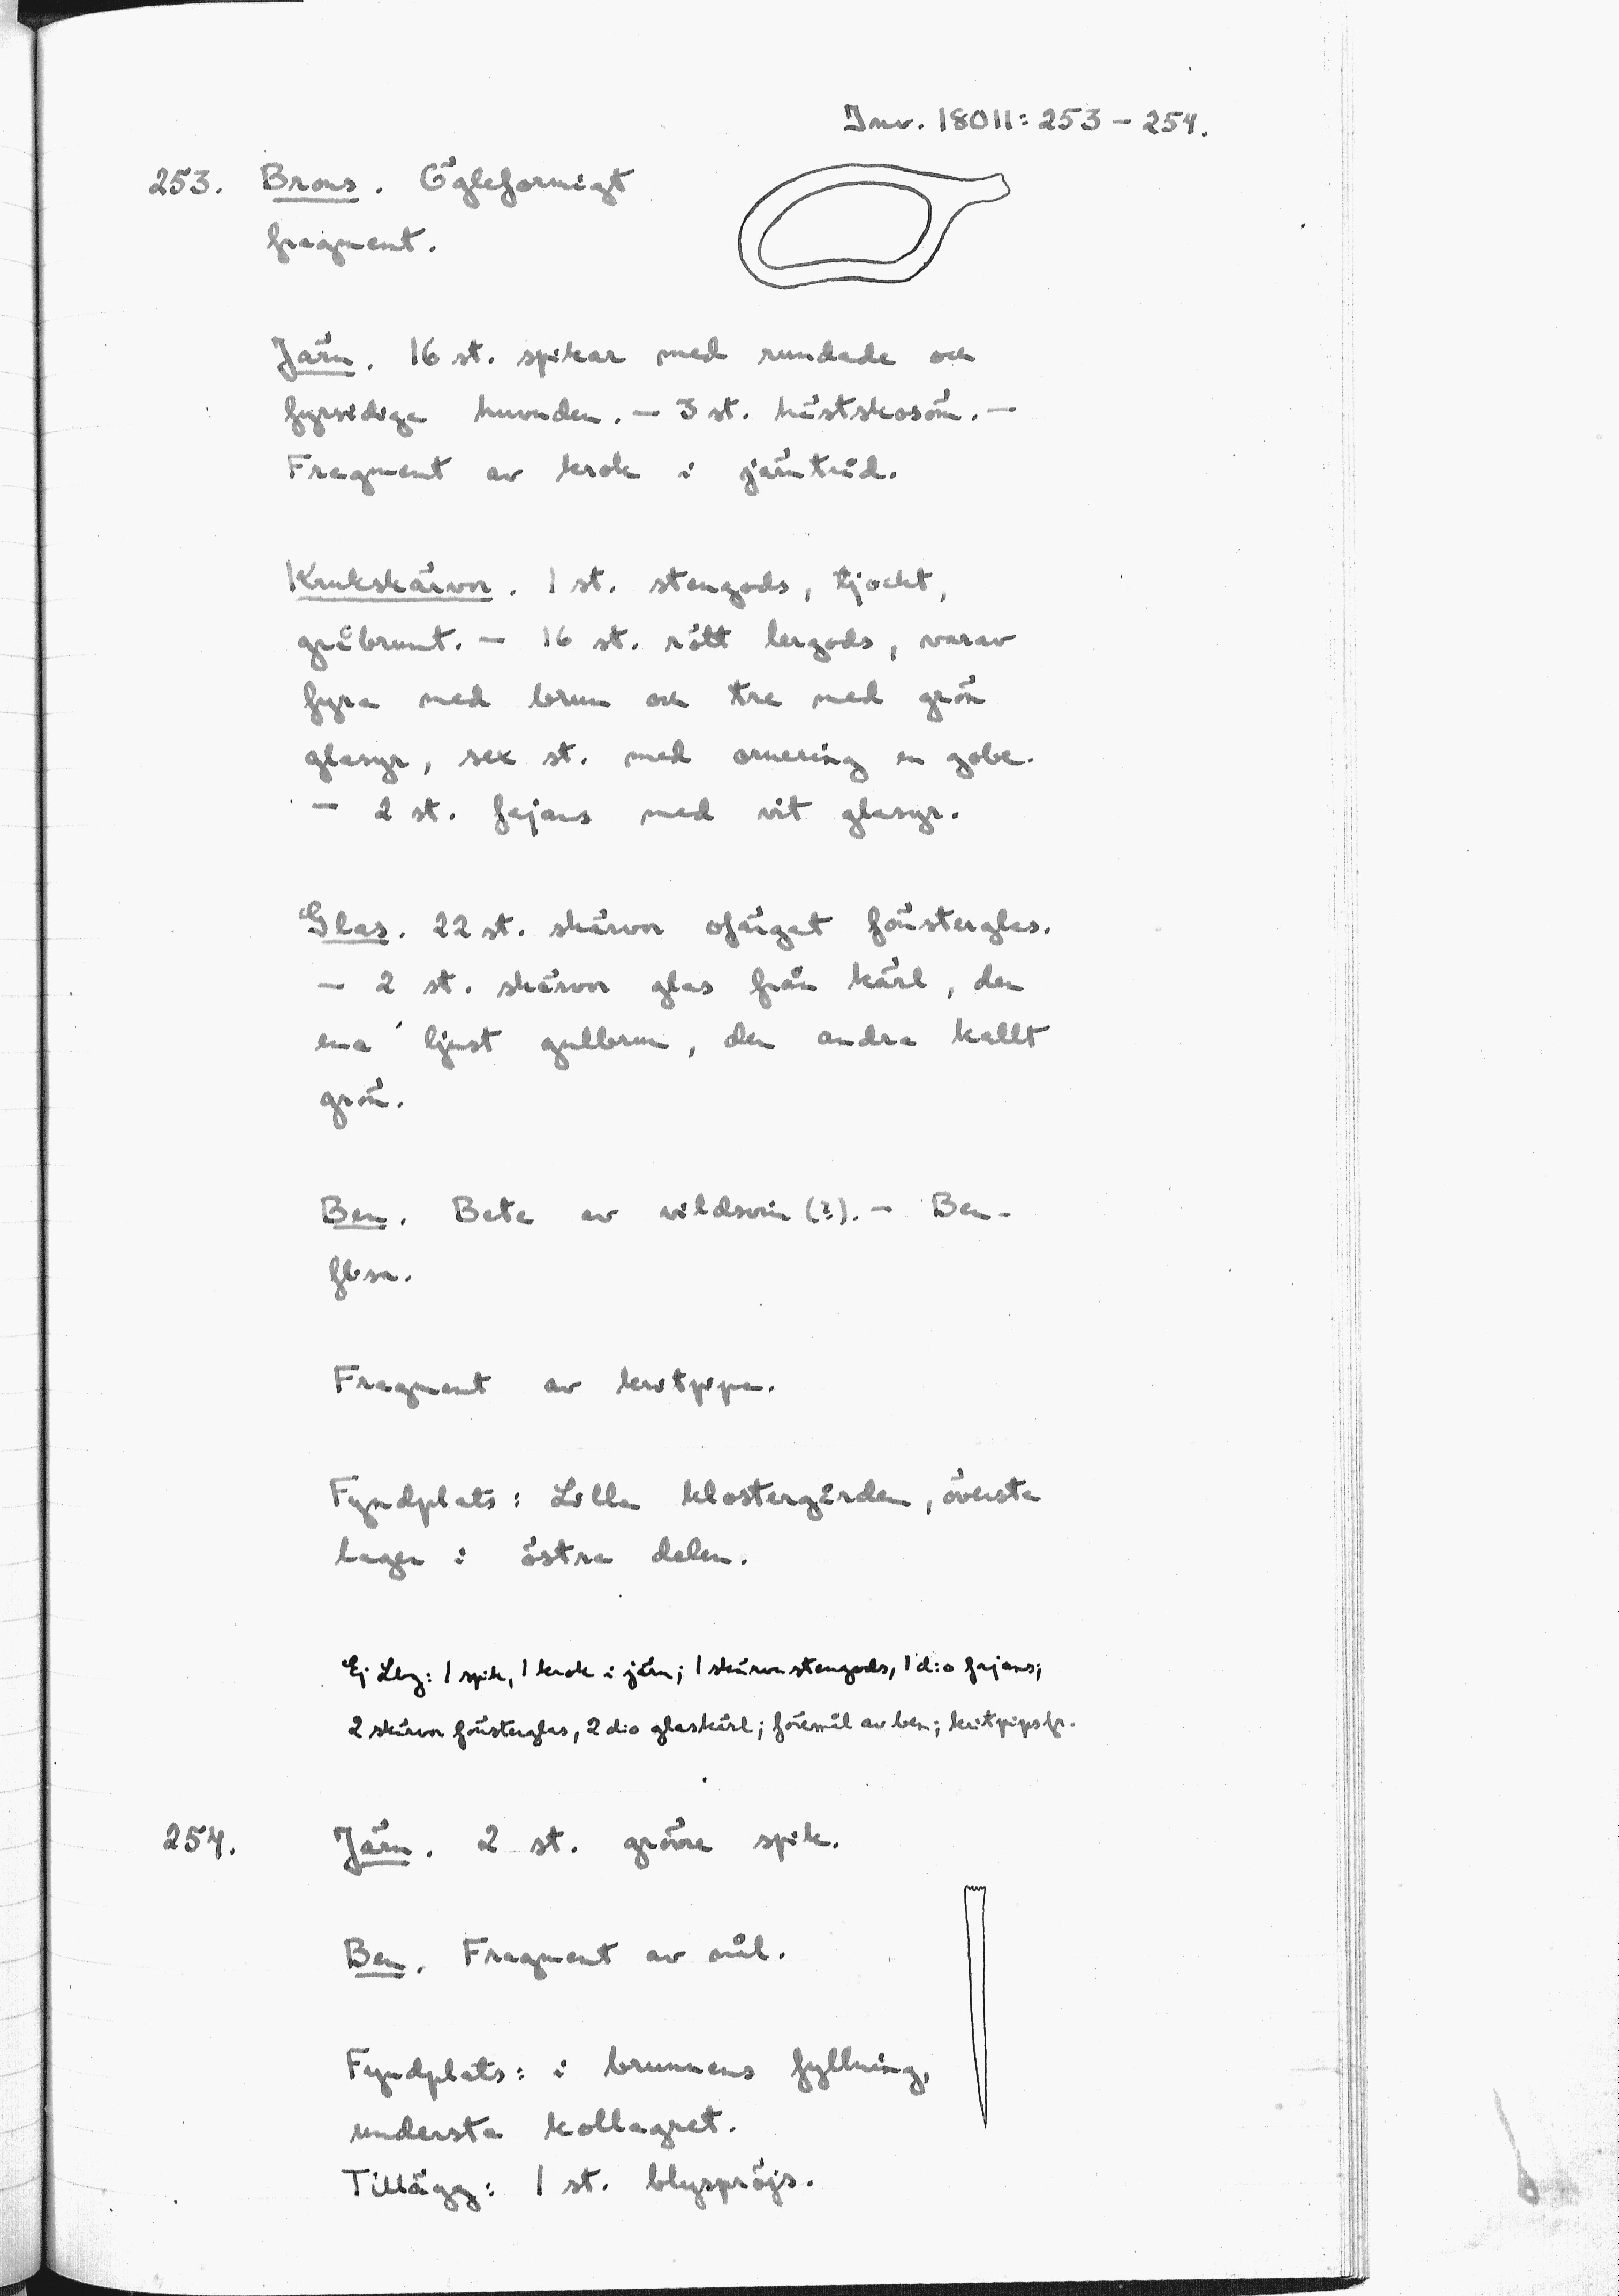 Inv. 18011: 253 – 254.
253. Brons. Ögleformigt
fragment.
Järn. 16 st. spikar med rundade och
fyrsidiga huvuden. – 3 st. hästskosöm. –
Fragment av krok i järntråd.
Krukskärvor. 1 st. stengods, tjockt,
gråbrunt. – 16 st. rött lergods, varav
fyra med brun och tre med grön
glasyr, sex st. med ornering en gobe.
– 2 st. fajans med vit glasyr.
Glas. 22 st. skärvor ofärgat fönsterglas.
– 2 st. skärvor glas från kärl, den
ena ljust gulbrun, den andra kallt
grön.
Ben. Bete av vildsvin (?). – Ben-
flisa.
Fragment av kritpipa.
Fyndplats: Lilla klostergården, översta
lager i östra delen.
Ej Lbg: 1 spik, 1 krok i järn; 1 skärva stengods, 1 d:o fajans;
2 skärvor fönsterglas, 2 d:o glaskärl; föremål av ben; kritpipsfr.
254. Järn. 2 st. grövre spik.
Ben. Fragment av nål.
Fyndplats: i brunnens fyllning,
understa kollagret.
Tillägg: 1 st. blyspröjs.